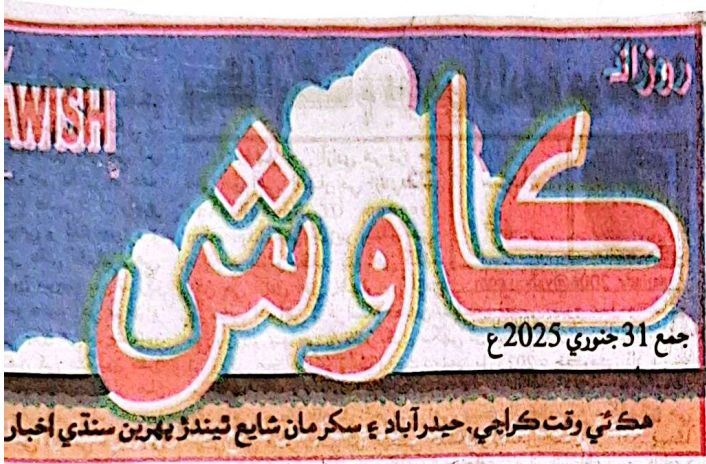 روزاني
AWISH
ڪاوش
جمع 31 جنوري 2025 ع
هڪ ئي وقت ڪراچي، حيدرآباد ۽ سکر مان شايع ٿيندڙ پهرين سنڌي اخبار